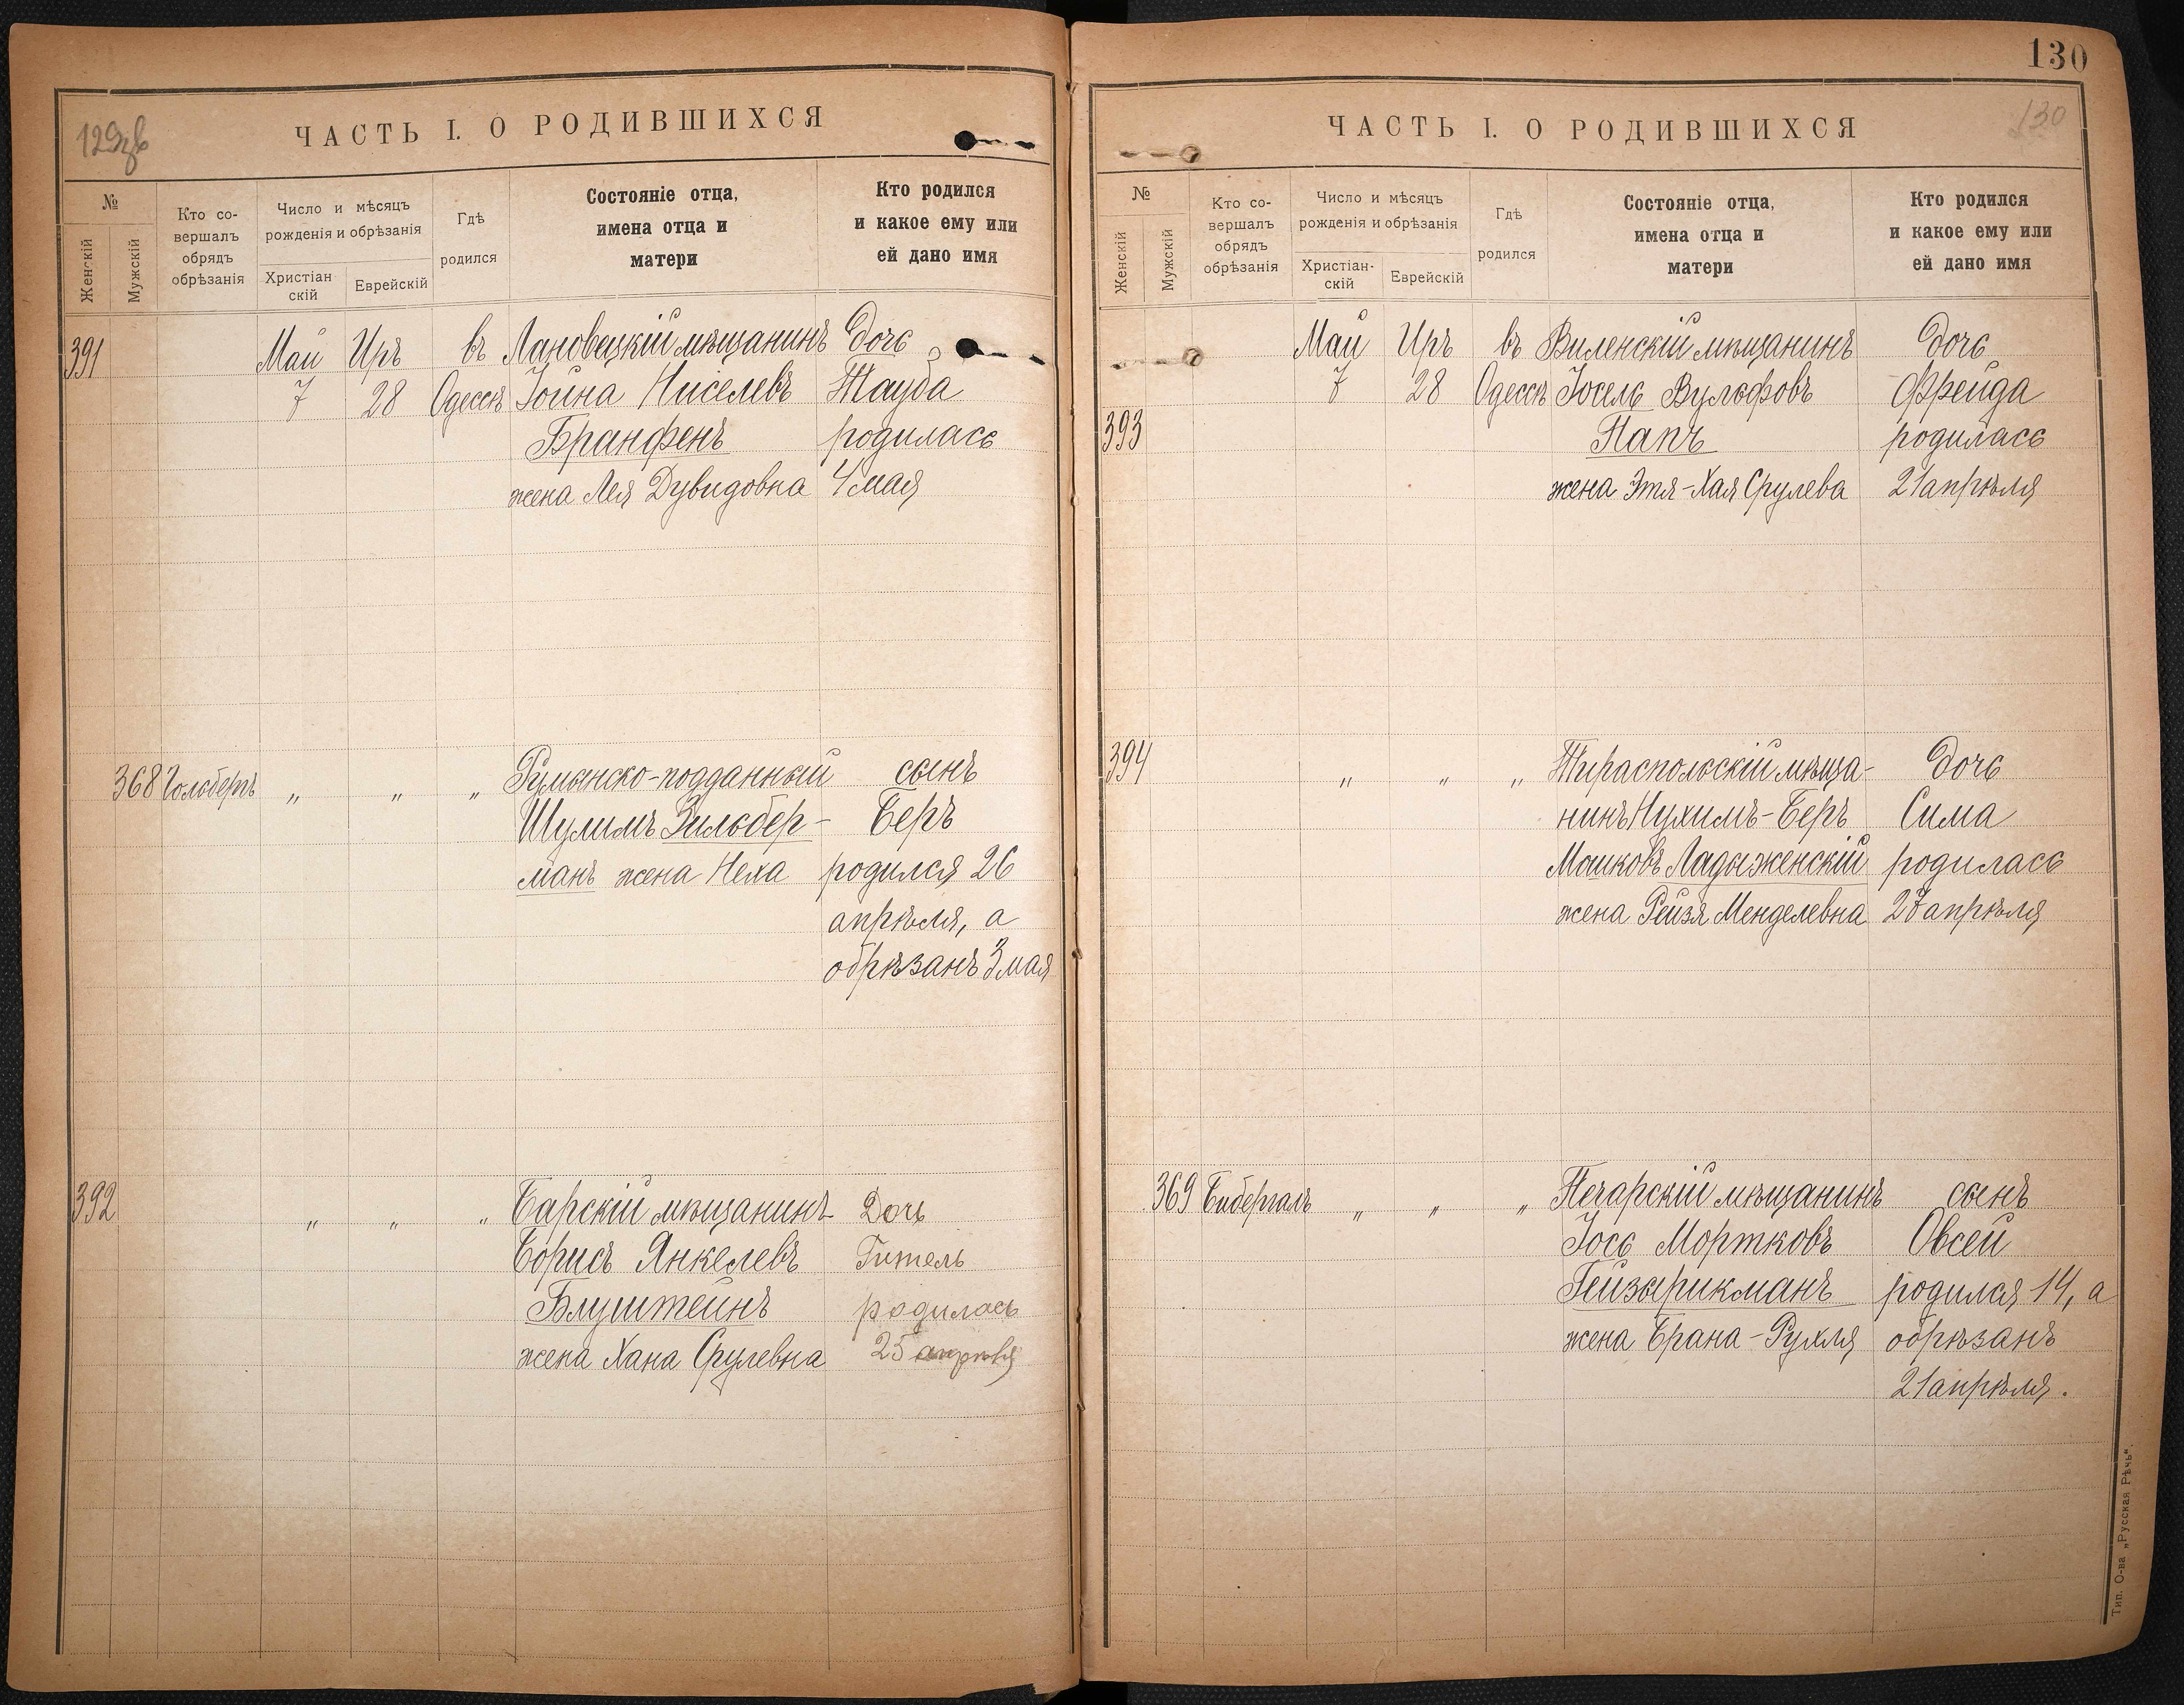 129об
ЧАСТЬ I. О РОДИВШИХСЯ
№
Женскій
Мужскій
Кто со-
вершалъ
обрядъ
обрѣзанія
Число и мѣсяцъ
рожденія и обрѣзанія
Христіан
скій
Еврейскій
Гдѣ
родился
Состояніе отца,
имена отца и
матери
Кто родился
и какое ему или
ей дано имя
391 Май Иръ въ Лановецкій мѣщанинъ Дочь
7 28 Одессѣ Іойна Ниселевъ Тауба
Бранфенъ родилась
жена Лея Дувидовна 4 мая
368 Гольбергъ „ „ „ Румынско-подданный сынъ
Шулимъ Зильбер- Беръ
манъ жена Неха родился 26
апрѣля, а
обрѣзанъ 3 мая
392 „ „ „ Барскій мѣщанинъ Дочь
Борисъ Янкелевъ Гитель
Блуштейнъ родилась
жена Хана Срулевна 25 апрѣля
130
130
ЧАСТЬ I. О РОДИВШИХСЯ
№
Женскій
Мужскій
Кто со-
вершалъ
обрядъ
обрѣзанія
Число и мѣсяцъ
рожденія и обрѣзанія
Христіан-
скій
Еврейскій
Гдѣ
родился
Состояніе отца,
имена отца и
матери
Кто родился
и какое ему или
ей дано имя
Май Иръ въ Виленскій мѣщанинъ Дочь
7 28 Одессѣ Іосель Вульфовъ Фрейда
393 Папъ родилась
жена Этя-Хая Срулева 21 апрѣля
394 „ „ „ Тираспольскій мѣща- Дочь
нинъ Нухимъ-Беръ Сима
Мошковъ Ладыженскій родилась
жена Рейзя Менделевна 27 апрѣля
369 Бибергалъ „ „ „ Печарскій мѣщанинъ сынъ
Іось Мортковъ Овсей
Гейзырикманъ родился 14, а
жена Брана-Рухля обрѣзанъ
21 апрѣля.
Тип. О-ва „Русская Рѣчь".